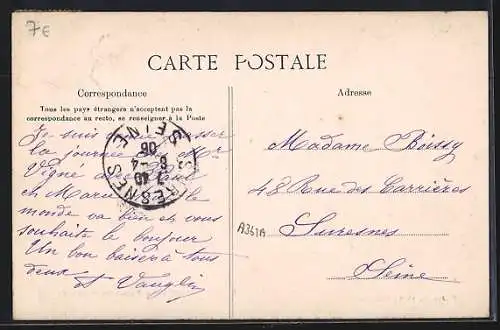 7€
CARTE POSTALE
Correspondance
Adresse
Tous les pays étrangers n'acceptent pas la
correspondance au recto, se renseigner à la Poste
Je suis passer
la journée Mr
Vigne
ch Marie le
monde va bien et vous
souhaite le bonjour
Un bon baiser à tous
deux
SURESNES SEINE
7 40
8 -4
06
Madame Boissy
48 Rue des Carrières
A361A
Suresnes
Seine